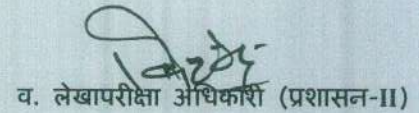 व. लेखापरीक्षा अधिकारी (प्रशासन-II)